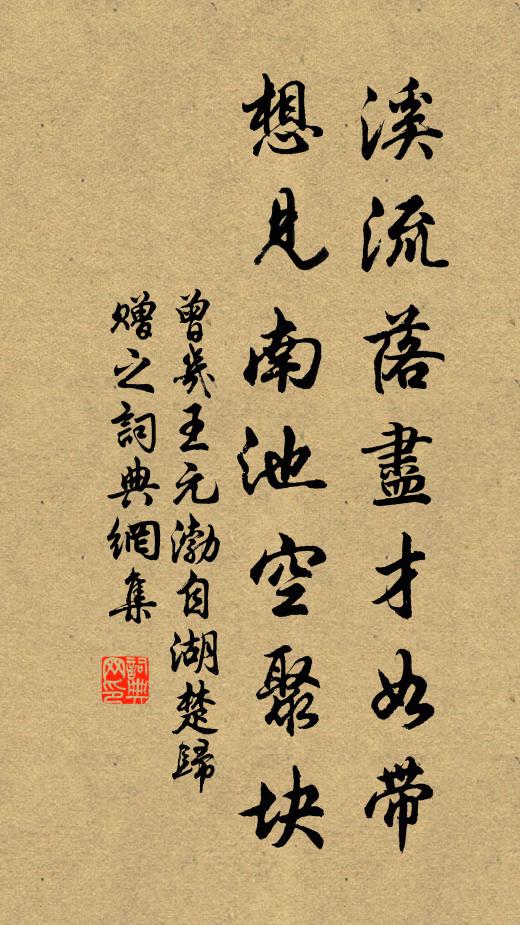 溪流落盡才如帶
想見南池空聚块
曾幾王元渤自湖楚歸
贈之詞典網集
詞典網印